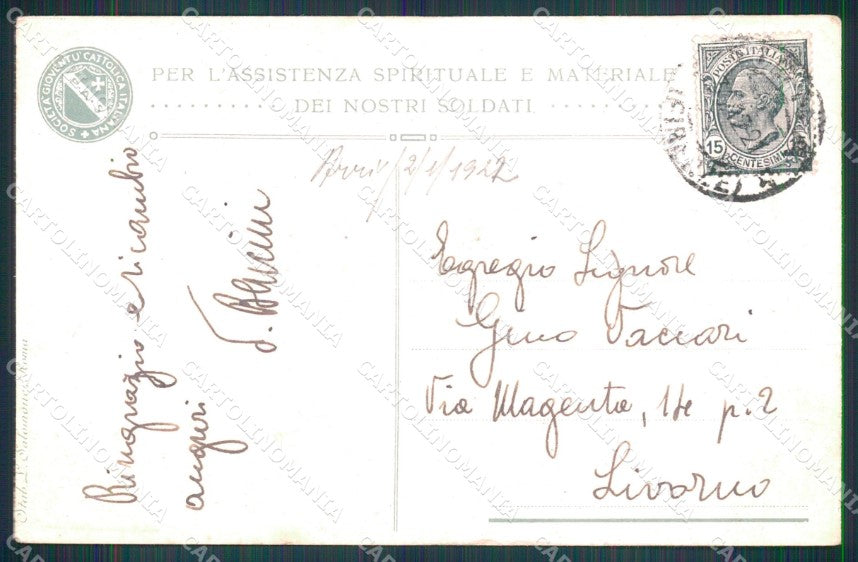 SOCIETÀ GIOVENTÙ CATTOLICA ITALIANA
PER L'ASSISTENZA SPIRITUALE E MATERIALE
DEI NOSTRI SOLDATI
POSTE ITALIANE
15
CENTESIMI
2/1/1922
Ringrazio e ricambio
auguri
Egregio Signore
Gino Vaccari
Via Magenta, 14 p. 2
Livorno
CARTOLINOMANIA